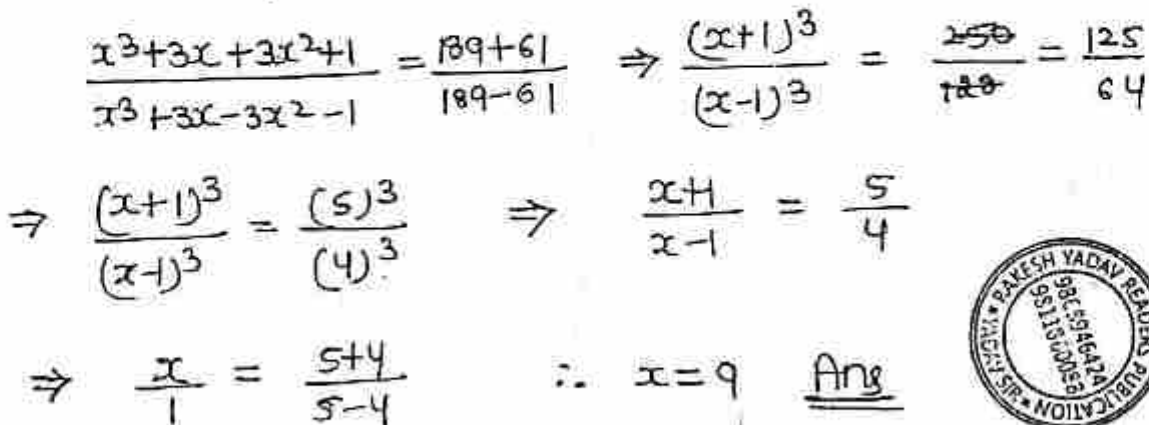 x³+3x+3x²+1 / x³+3x-3x²-1 = 189+61 / 189-61 ⇒ (x+1)³ / (x-1)³ = 250 / 128 = 125 / 64
⇒ (x+1)³ / (x-1)³ = (5)³ / (4)³ ⇒ x+1 / x-1 = 5 / 4
⇒ x / 1 = 5+4 / 5-4 ∴ x=9 Ans
RAKESH YADAV READERS PUBLICATION
YADAV SIR